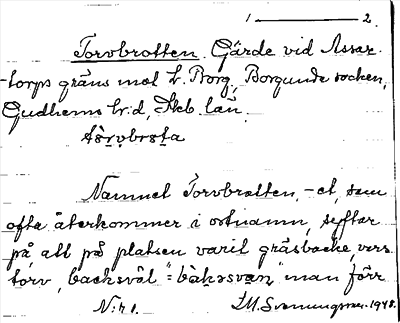 1 — 2.
Torvbrotten. Gärde vid Assar-
torps gräns mot L. Borg, Borgunda socken,
Gudhems hr:d, Skb. län.
Namnet Torvbrotten, -et, som
ofta återkommer i ortnamn, syftar
på att på platsen varit gräsbacke, vars
torv, backsvål man förr
N:r 1.
1948.